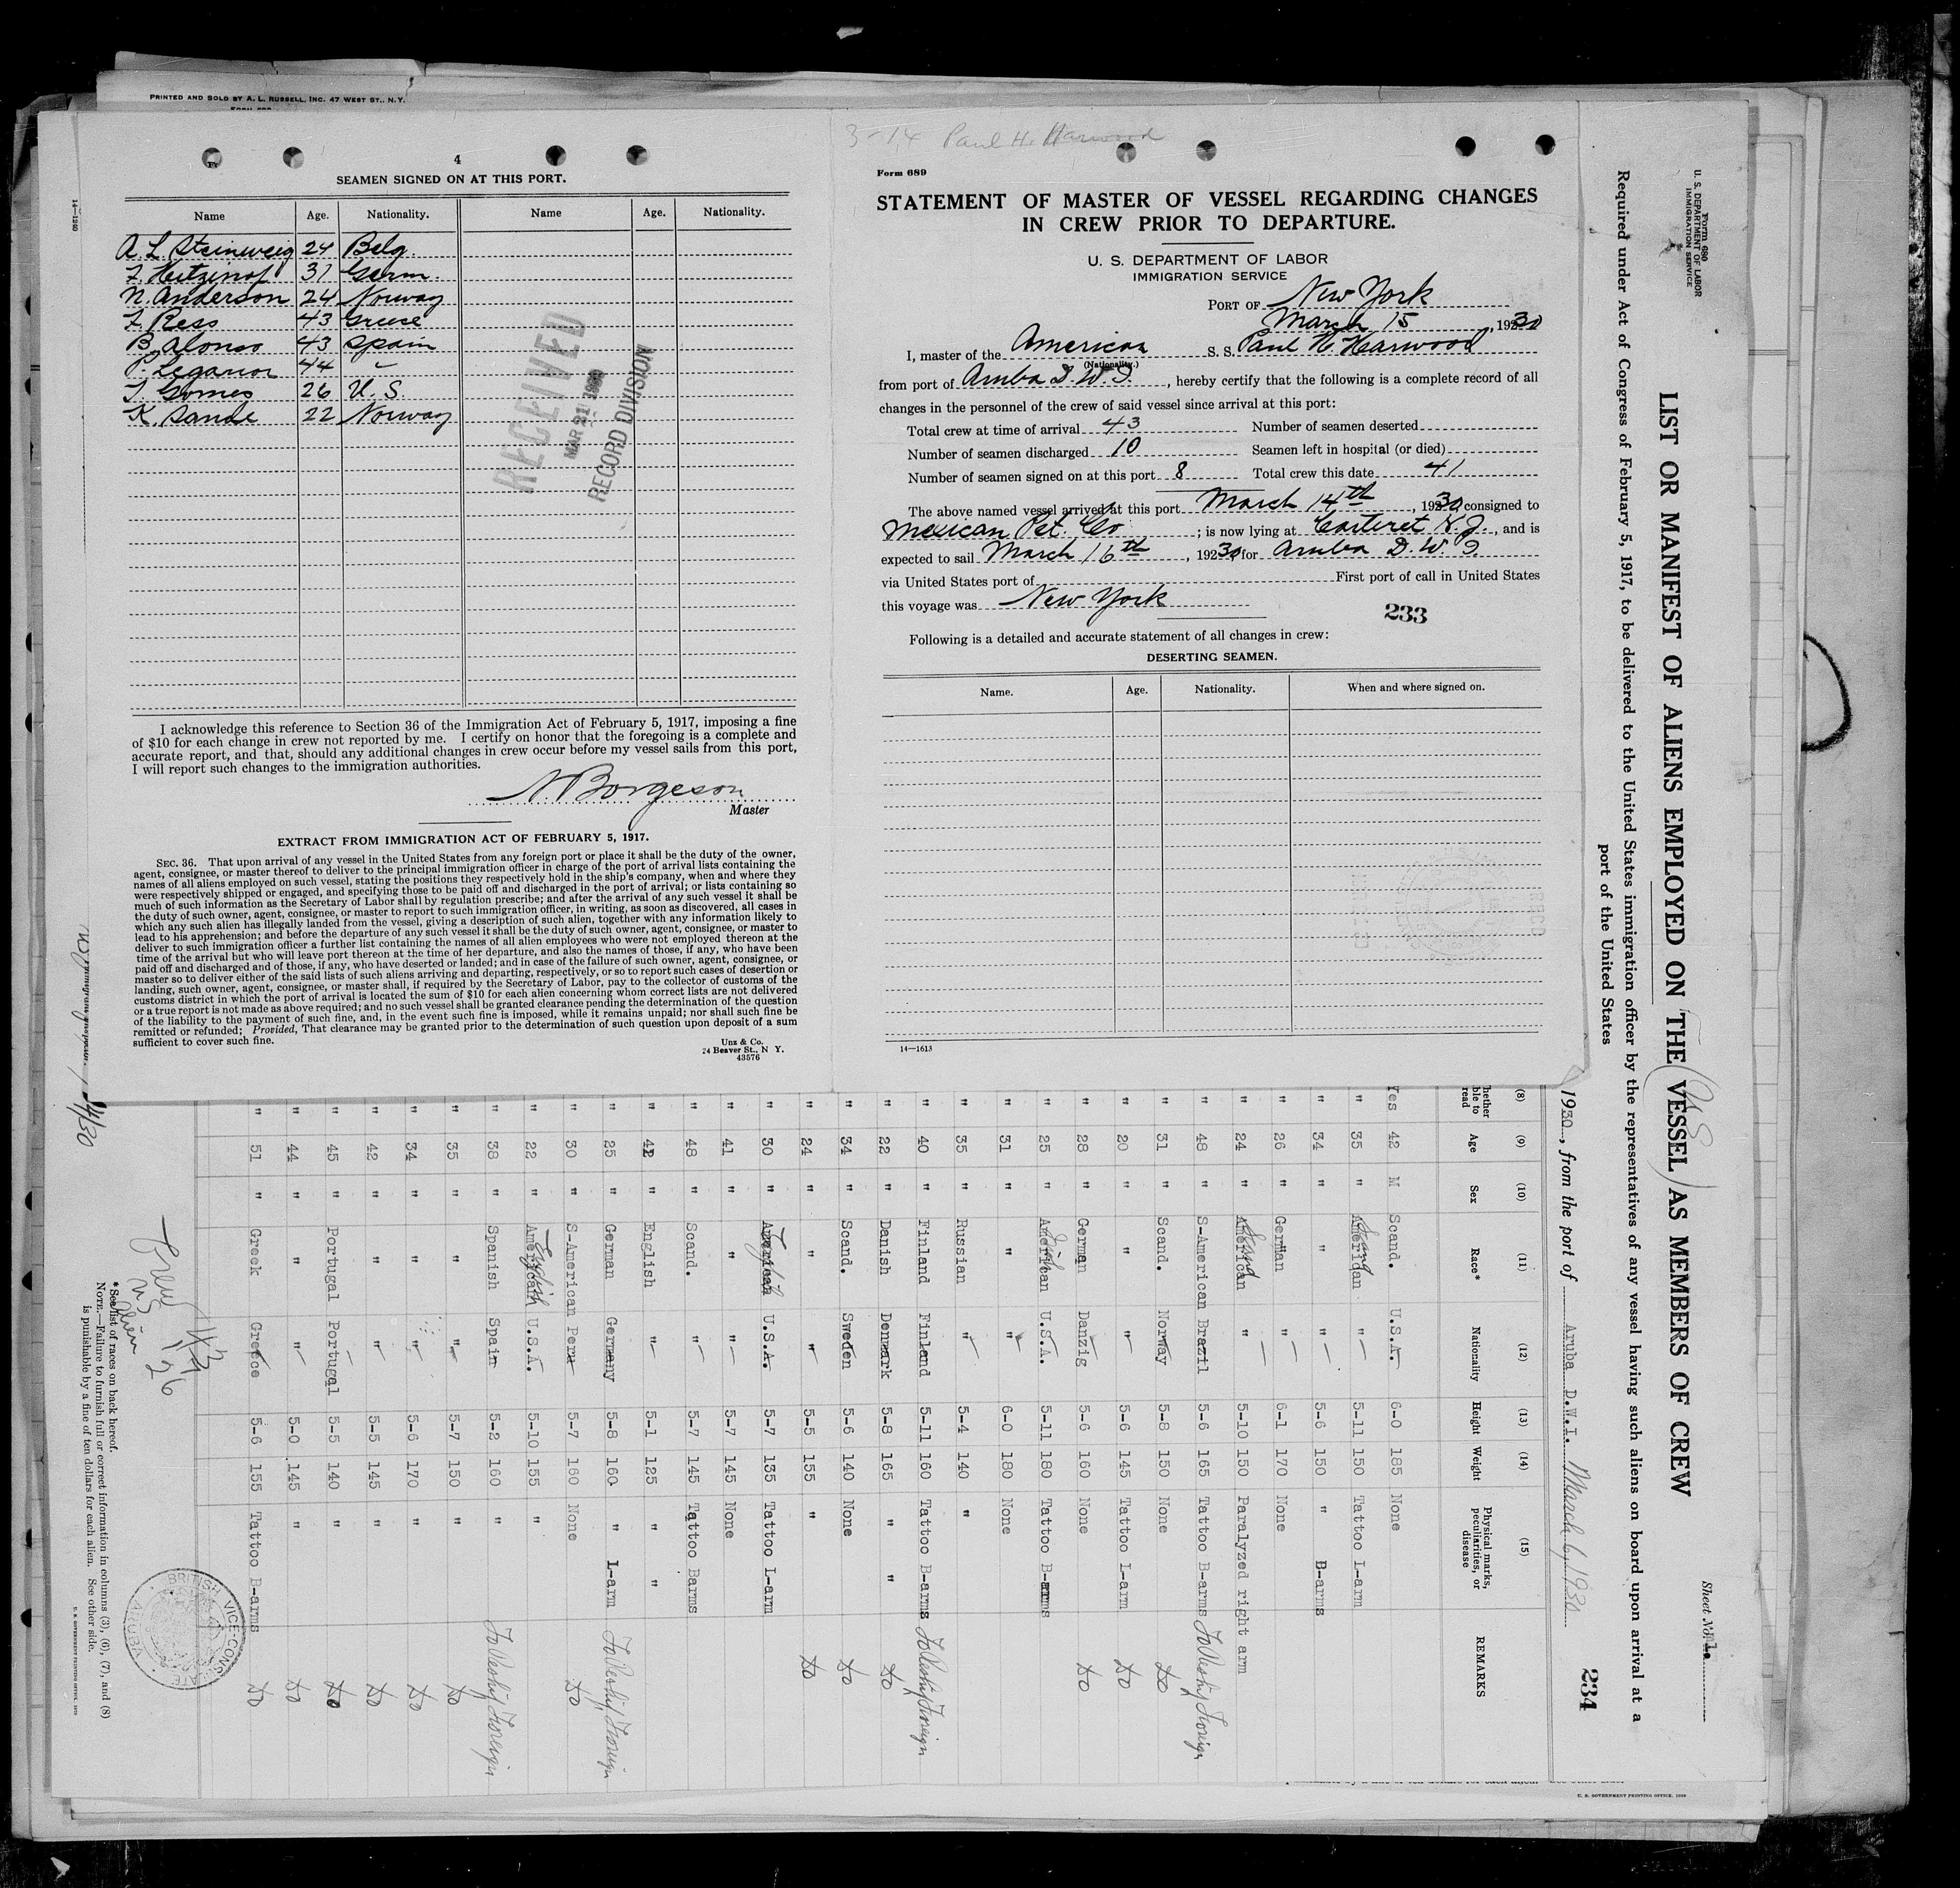 PRINTED AND SOLD BY A. L. RUSSELL, INC. 47 WEST ST., N.Y.
4
SEAMEN SIGNED ON AT THIS PORT.
Name Age. Nationality. Name Age. Nationality.
A. L. Steinweig 24 Belg.
31 Germ.
N. Anderson 24 Norway
F. Ress 43 Greece
B. Alonso 43 Spain
P. 44 "
Gomes 26 U.S
K. Sande 22 Norway
RECEIVED
MAR 21 1930
RECORD DIVISION
I acknowledge this reference to Section 36 of the Immigration Act of February 5, 1917, imposing a fine
of $10 for each change in crew not reported by me. I certify on honor that the foregoing is a complete and
accurate report, and that, should any additional changes in crew occur before my vessel sails from this port,
I will report such changes to the immigration authorities.
N Borgeson
Master
EXTRACT FROM IMMIGRATION ACT OF FEBRUARY 5, 1917.
SEC. 36. That upon arrival of any vessel in the United States from any foreign port or place it shall be the duty of the owner,
agent, consignee, or master thereof to deliver to the principal immigration officer in charge of the port of arrival lists containing the
names of all aliens employed on such vessel, stating the positions they respectively hold in the ship's company, when and where they
were respectively shipped or engaged, and specifying those to be paid off and discharged in the port of arrival; or lists containing so
much of such information as the Secretary of Labor shall by regulation prescribe; and after the arrival of any such vessel it shall be
the duty of such owner, agent, consignee, or master to report to such immigration officer, in writing, as soon as discovered, all cases in
which any such alien has illegally landed from the vessel, giving a description of such alien, together with any information likely to
lead to his apprehension; and before the departure of any such vessel it shall be the duty of such owner, agent, consignee, or master to
deliver to such immigration officer a further list containing the names of all alien employees who were not employed thereon at the
time of the arrival but who will leave port thereon at the time of her departure, and also the names of those, if any, who have been
paid off and discharged and of those, if any, who have deserted or landed; and in case of the failure of such owner, agent, consignee, or
master so to deliver either of the said lists of such aliens arriving and departing, respectively, or so to report such cases of desertion or
landing, such owner, agent, consignee, or master shall, if required by the Secretary of Labor, pay to the collector of customs of the
customs district in which the port of arrival is located the sum of $10 for each alien concerning whom correct lists are not delivered
or a true report is not made as above required; and no such vessel shall be granted clearance pending the determination of the question
of the liability to the payment of such fine, and, in the event such fine is imposed, while it remains unpaid; nor shall such fine be
remitted or refunded; Provided, That clearance may be granted prior to the determination of such question upon deposit of a sum
sufficient to cover such fine.
Unz & Co.
24 Beaver St., N. Y.
43576
14—1240
3-14 Paul H. Harwood
Form 689
STATEMENT OF MASTER OF VESSEL REGARDING CHANGES
IN CREW PRIOR TO DEPARTURE.
U. S. DEPARTMENT OF LABOR
IMMIGRATION SERVICE
PORT OF New York
March 15, 1930
I, master of the American S. S. Paul H Harwood
(Nationality.)
from port of Aruba D.W.I., hereby certify that the following is a complete record of all
changes in the personnel of the crew of said vessel since arrival at this port:
Total crew at time of arrival 43 Number of seamen deserted
Number of seamen discharged 10 Seamen left in hospital (or died)
Number of seamen signed on at this port 8 Total crew this date 41
The above named vessel arrived at this port March 14th, 1930, consigned to
Mexican Pet. Co ; is now lying at Carteret N.J., and is
expected to sail March 16th, 1930, for Aruba D.W.I.
via United States port of First port of call in United States
this voyage was New York
233
Following is a detailed and accurate statement of all changes in crew:
DESERTING SEAMEN.
Name. Age. Nationality. When and where signed on.
14—1613
Form 680
U. S. DEPARTMENT OF LABOR
IMMIGRATION SERVICE
Sheet No. 1.
LIST OR MANIFEST OF ALIENS EMPLOYED ON THE VESSEL AS MEMBERS OF CREW
U S
Required under Act of Congress of February 5, 1917, to be delivered to the United States immigration officer by the representatives of any vessel having such aliens on board upon arrival at a
port of the United States
234
1930, from the port of Aruba D.W.I. March 6, 1930
(8) (9) (10) (11) (12) (13) (14) (15)
hether ble to read Age Sex Race* Nationality Height Weight Physical marks, peculiarities, or disease REMARKS
Yes 42 M Scand. U.S.A. 6-0 185 None
" 35 " American Scand " 5-11 150 Tattoo L-arm
" 34 " " " 5-6 150 " B-arms
" 26 " German " 6-1 170 None
" 24 " American Scand " 5-10 150 Paralyzed right arm
" 48 " S-American Brazil 5-6 165 Tattoo B-arms To Reship Foreign
" 31 " Scand. Norway 5-8 150 None Do
" 20 " " " 5-6 145 Tattoo L-arm Do
" 28 " German Danzig 5-6 160 None Do
" 25 " American U.S.A. 5-11 180 Tattoo B-arms
" 31 " " " 6-0 180 None
" 35 " Russian " 5-4 140 "
" 40 " Finland Finland 5-11 160 Tattoo B-arms To Reship Foreign
" 22 " Danish Denmark 5-8 165 " " Do
" 34 " Scand. Sweden 5-6 140 None Do
" 24 " " " 5-5 155 " Do
" 30 " American English U.S.A. 5-7 135 Tattoo L-arm
" 41 " " " 5-7 145 None
" 48 " Scand. " 5-7 145 Tattoo Barms
" 42 " English " 5-1 125 " "
" 25 " German Germany 5-8 160 " L-arm To Reship Foreign
" 30 " S-American Peru 5-7 160 None Do
" 22 " American English U.S.A. 5-10 155 "
" 38 " Spanish Spain 5-2 160 " To Reship Foreign
" 35 " " " 5-7 150 " Do
" 34 " " " 5-6 170 " Do
" 42 " " " 5-5 145 " Do
" 45 " Portugal Portugal 5-5 140 " Do
" 44 " " " 5-0 145 " Do
" 51 " Greek Greece 5-6 155 Tattoo B-arms Do
Crew 43
US 17
Alien 26
BRITISH VICE-CONSULATE ARUBA
*See list of races on back hereof.
NOTE.—Failure to furnish full or correct information in columns (3), (6), (7), and (8)
is punishable by a fine of ten dollars for each alien. See other side.
U. S. GOVERNMENT PRINTING OFFICE
U. S. GOVERNMENT PRINTING OFFICE, 1929